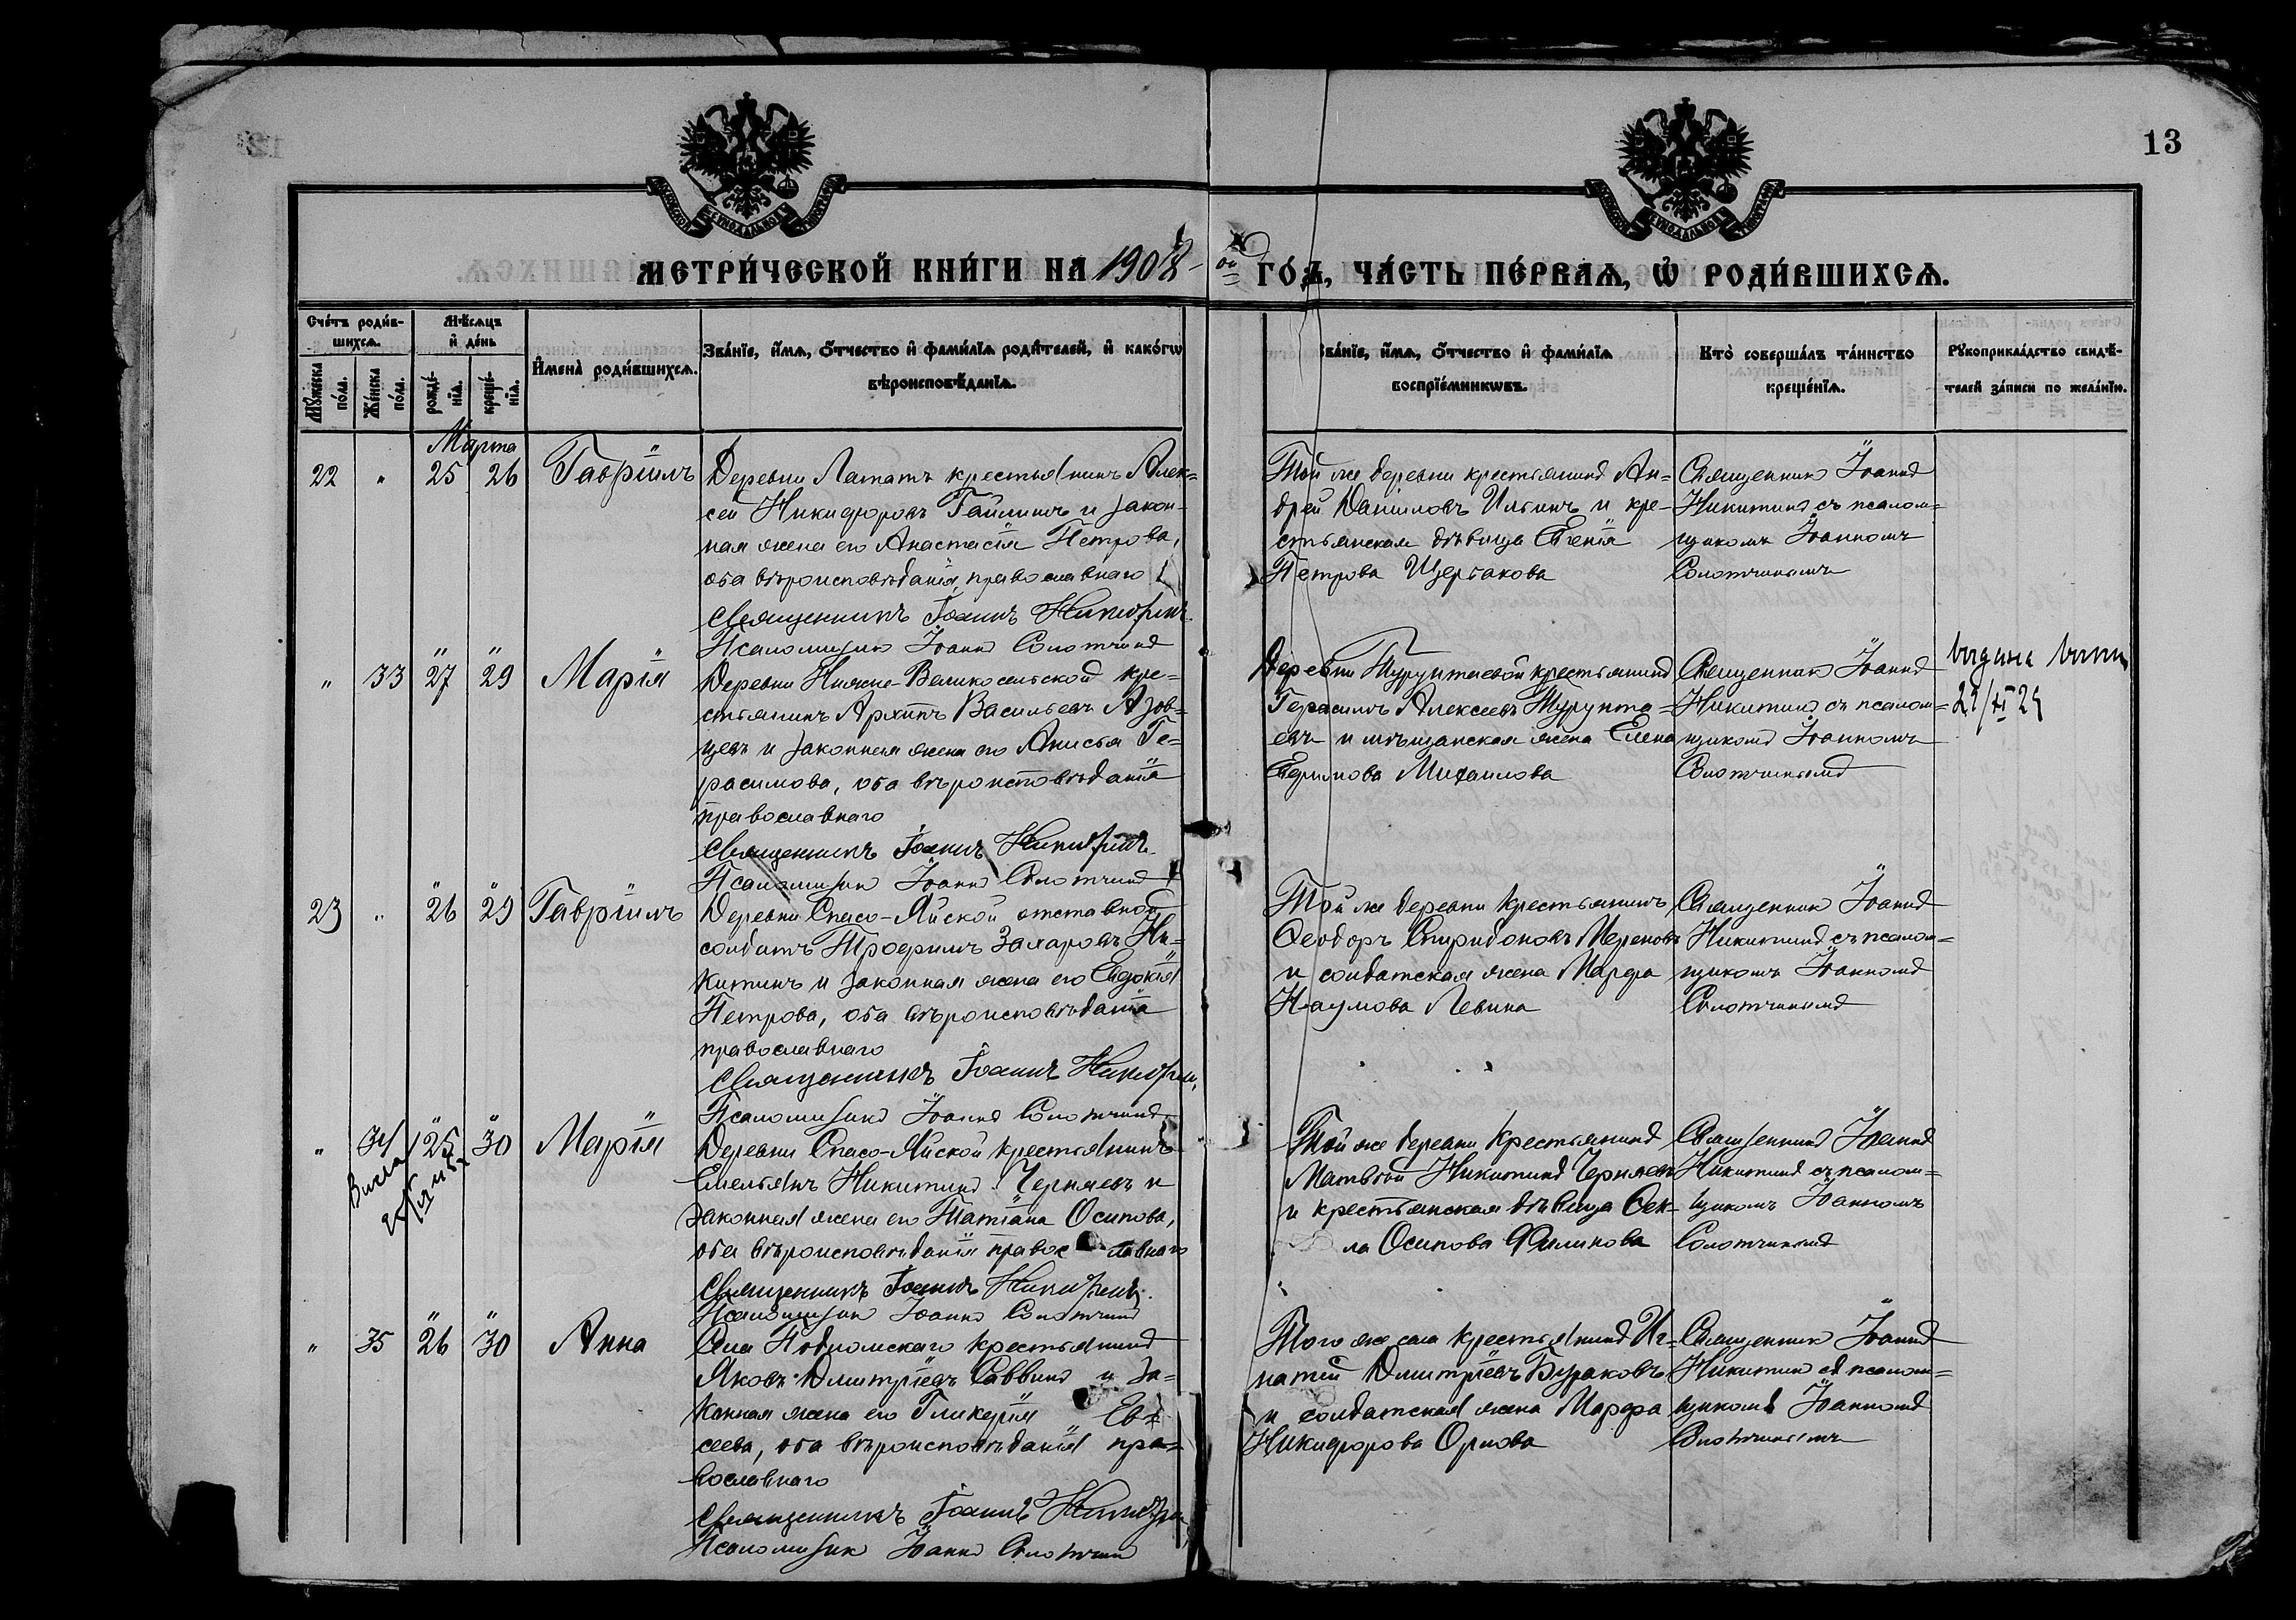 13
МЕТРИ́ЧЕСКОЙ КНИ́ГИ НА 1908-ой ГО́ДЪ, ЧА́СТЬ ПЕ́РВАѦ, Ѡ҆ РОДИ́ВШИХСѦ.
Сче́тъ роди́в-
шихсѧ.
Мꙋ́жеска по́ла.
Же́нска по́ла.
Мѣ́сѧцъ
и҆ де́нь
рожде́-
нїѧ.
креще́-
нїѧ.
И҆мена̀ роди́вшихсѧ.
Зва́нїе, и҆́мѧ, о҆́тчество и҆ фами́лїѧ роди́телей, и҆ како́гѡ
вѣроисповѣ́данїѧ.
Зва́нїе, и҆́мѧ, о҆́тчество и҆ фами́лїѧ
воспрїе́мникѡвъ.
Кто̀ соверша́лъ та́инство
креще́нїѧ.
Рꙋкоприкла́дство свидѣ́-
телей за́писи по жела́нїю.
Марта
22 " 25 26 Гавріилъ
Деревни Лататъ крестьянинъ Алек=
сей Никифоровъ Гайлинъ и закон-
ная жена его Анастасія Петрова,
оба вѣроисповѣданія православнаго
Священникъ Іоаннъ Никитинъ.
Псаломщикъ Іоаннъ Солотчинъ
Той же деревни крестьянинъ Ан=
дрей Даниловъ Ильинъ и кре-
стьянская дѣвица Евгенія
Петрова Щербакова
Священникъ Іоаннъ
Никитинъ съ псалом=
щикомъ Іоанномъ
Солотчинымъ
" 33 27 29 Марія
Деревни Нижне-Великосельской кре=
стьянинъ Архипъ Васильевъ Азов=
цевъ и законная жена его Анисья Ге=
расимова, оба вѣроисповѣданія
православнаго
Священникъ Іоаннъ Никитинъ.
Псаломщикъ Іоаннъ Солотчинъ
Деревни Турунтаевой крестьянинъ
Герасимъ Алексеевъ Турунта=
евъ и мѣщанская жена Елена
Ефимова Михаилова
Священникъ Іоаннъ
Никитинъ съ псалом=
щикомъ Іоанномъ
Солотчинымъ
выдана
23 " 26 29 Гавріилъ
Деревни Спасо-Яйской отставной
солдатъ Трофимъ Захаровъ Ни=
китинъ и законная жена его Евдокія
Петрова, оба вѣроисповѣданія
православнаго
Священникъ Іоаннъ Никитинъ.
Псаломщикъ Іоаннъ Солотчинъ
Той же деревни крестьянинъ
Ѳеодоръ Спиридоновъ Мереновъ
и солдатская жена Марфа
Наумова Левина
Священникъ Іоаннъ
Никитинъ съ псалом=
щикомъ Іоанномъ
Солотчинымъ
" 34 25 30 Марія
Деревни Спасо-Яйской крестьянинъ
Емельянъ Никитинъ Черняевъ и
законная жена его Татіана Осипова,
оба вѣроисповѣданія православнаго
Священникъ Іоаннъ Никитинъ.
Псаломщикъ Іоаннъ Солотчинъ
Той же деревни крестьянинъ
Матвѣй Никитинъ Черняевъ
и крестьянская дѣвица Ѳек-
ла Осипова Филипова
Священникъ Іоаннъ
Никитинъ съ псалом=
щикомъ Іоанномъ
Солотчинымъ
" 35 26 30 Анна
Села Подломскаго крестьянинъ
Яковъ Дмитріевъ Саввинъ и за=
конная жена его Гликерія Ев=
сеева, оба вѣроисповѣданія пра=
вославнаго
Священникъ Іоаннъ Никитинъ
Псаломщикъ Іоаннъ Солотчинъ
Того же села крестьянинъ Иг=
натій Дмитріевъ Бураковъ
и солдатская жена Марфа
Никифорова Орлова
Священникъ Іоаннъ
Никитинъ съ псалом=
щикомъ Іоанномъ
Солотчинымъ